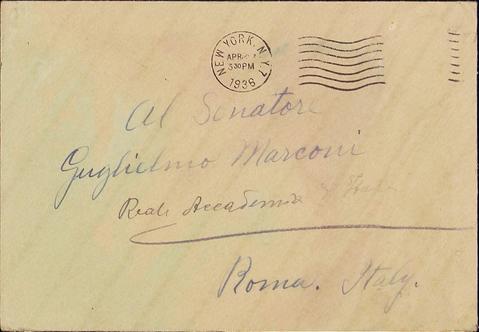 NEW YORK, N.Y. 7
APR
3 30 PM
1936
Al Senatore
Guglielmo Marconi
Reale Accademia d'Italia
Roma. Italy.